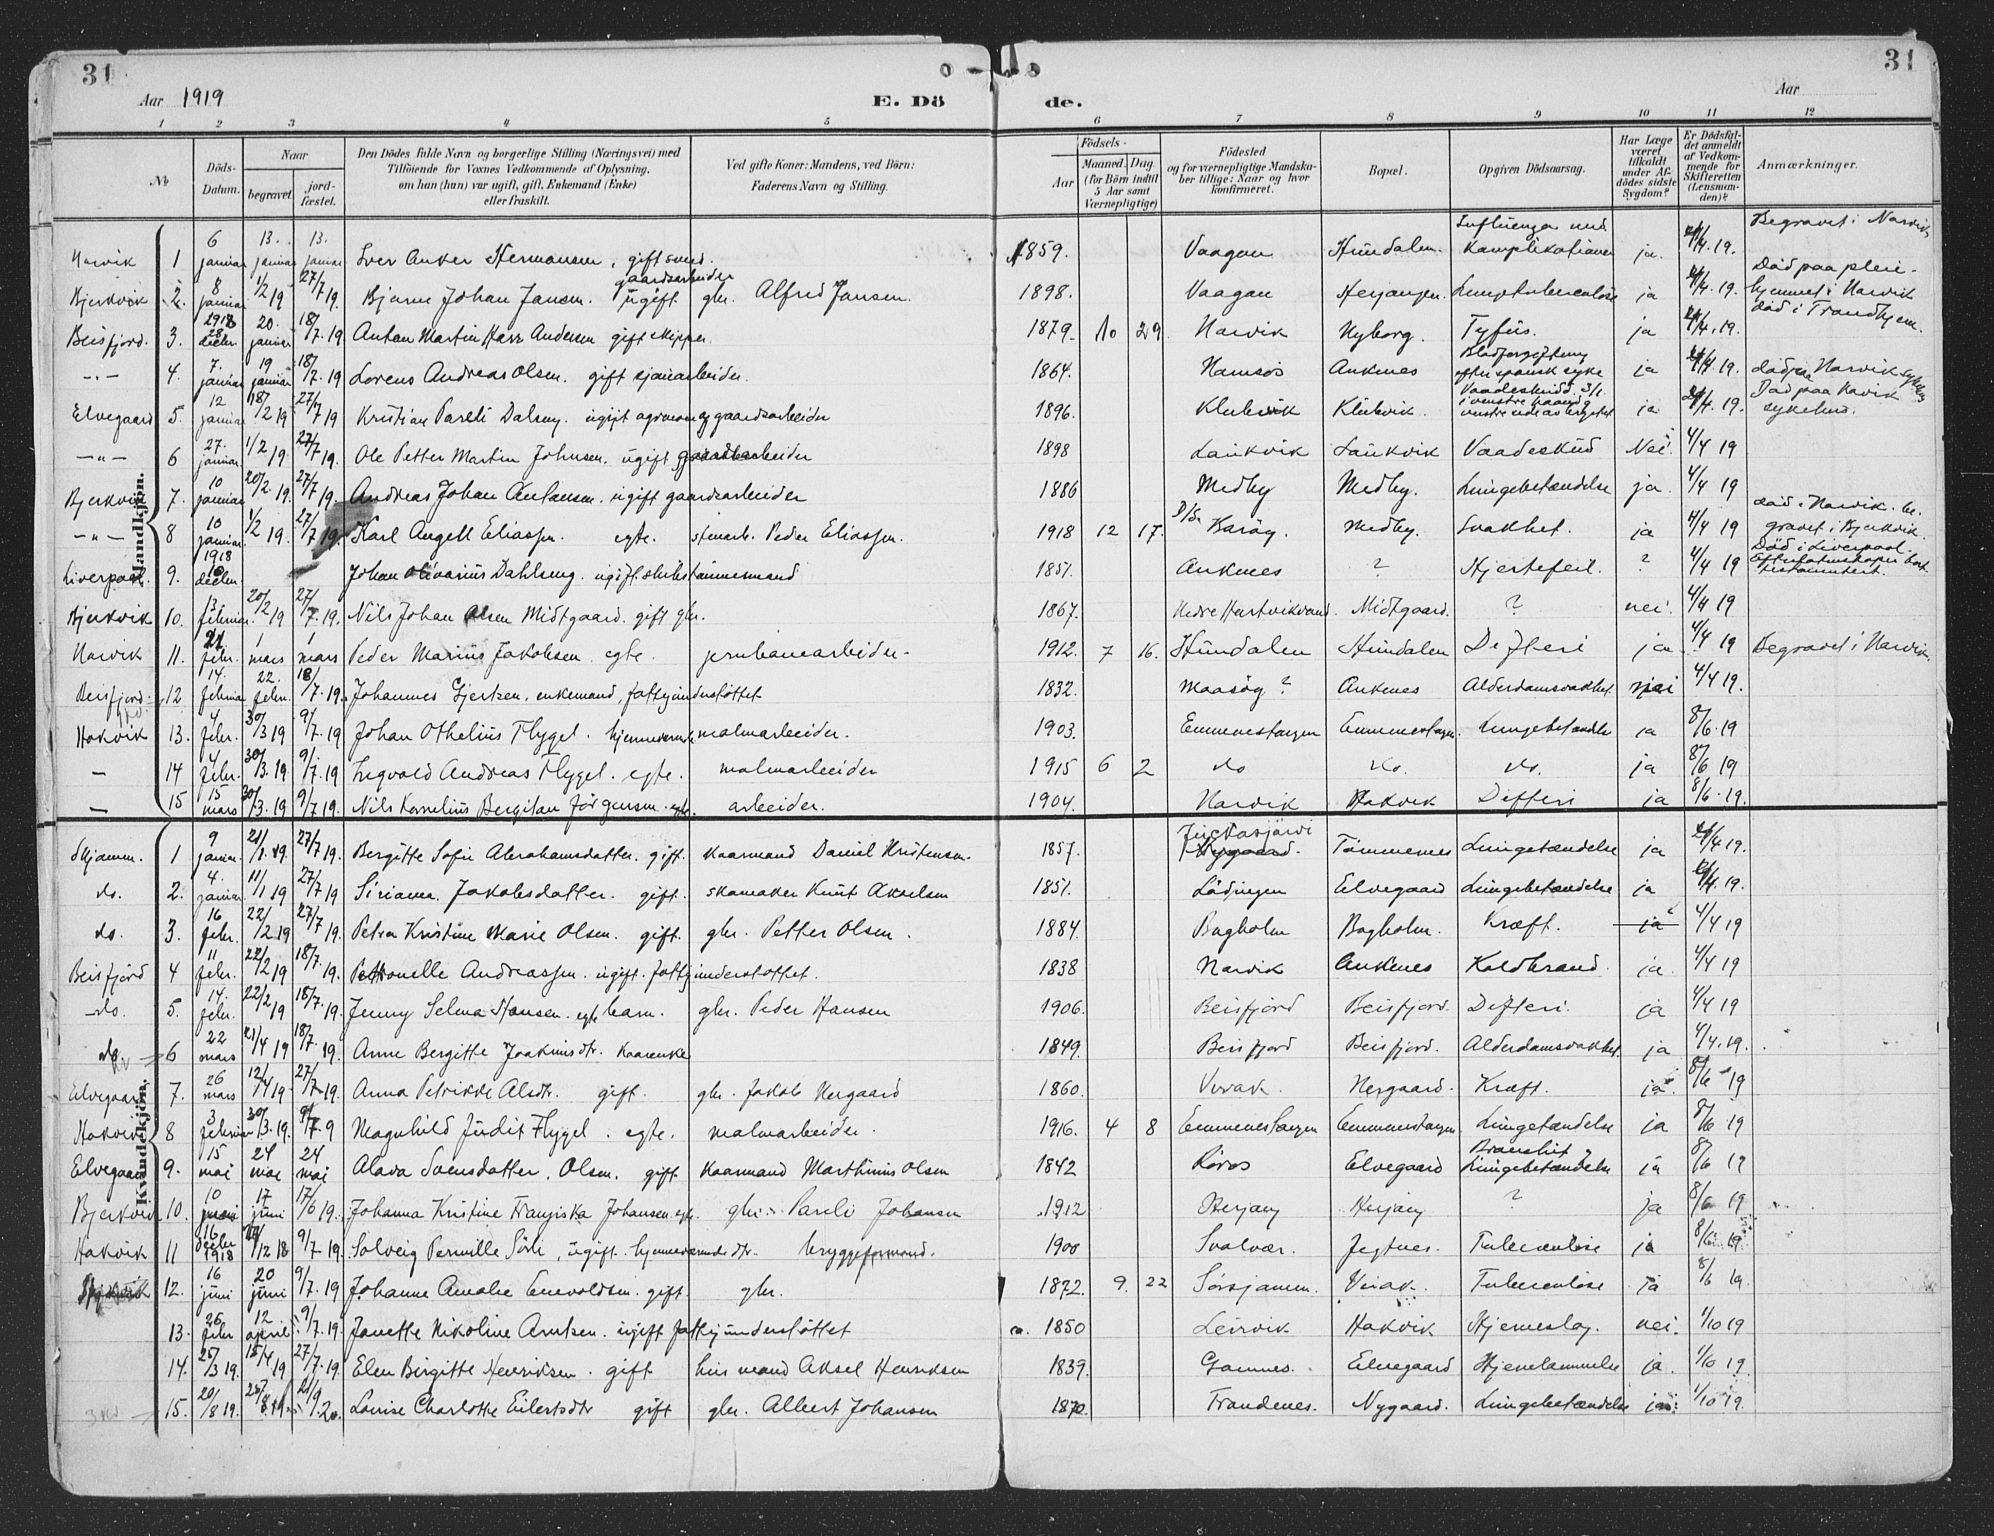 31 31
Aar 1919 E. Dö de. Aar
1 2 3 4 5 6 7 8 9 10 11 12
No Döds-Datum. Naar begravet. jordfæstet. Den Dödes fulde Navn og borgerlige Stilling (Næringsvei) med Tilföiende for Voxnes Vedkommende af Oplysning, om han (hun) var ugift, gift, Enkemand (Enke) eller fraskilt. Ved gifte Koner: Mandens, ved Börn: Faderens Navn og Stilling. Födsels- Aar Maaned. Dag (for Börn indtil 5 Aar samt Værnepligtige) Födested og for værnepligtige Mandskaber tillige: Naar og hvor konfirmeret. Bopæl. Opgiven Dödsaarsag. Har Læge været tilkaldt under Afdödes sidste Sygdom? Er Dödsfaldet anmeldt af Vedkommende for Skifteretten (Lensmanden)? Anmærkninger.
Mandkjön.
Narvik 1 6 januar 13. januar 13. januar Iver Anker Hermansen, gift smed. 1859. Vaagan Hundalen. Influenza med Komplikationer ja. 4/4. 19. Begravet i Narvik
Bjerkvik 2. 8 januar 1/2 19 27/7 19. Bjarne Johan Jansen. ugift gaardsarbeider gbr. Alfred Jansen. 1898. Vaagan Herjangen. Lungetuberculose ja 4/4. 19. Död paa pleiehjemmet i Narvik
Beisfjord. 3. 1918 28 decbr. 20. januar 18/7. 19 Anton Martin Harr Andersen gift skipper. 1879. 10 29 Narvik Nyborg. Tyfus. ja 4/4. 19. död i Trondhjem.
-"- 4. 7. januar 19 januar 18/7. 19 Lorens Andreas Olsen. gift sjauarbeider. 1864. Hamsös Ankenes Blodforgiftning efter spansk syke ja 4/4. 19. död paa Narvik sykehus
Elvegaard 5 12 januar 18/2 19 27/7 19 Kristian Pareli Dalseng. ugift agronom og gaardsarbeider 1896. Klubvik Klubvik. Vaadeskudd 3/1 i venstre haand og venstre side av brystet ja 4/4. 19. Död paa Narvik sykehus.
-"- 6 27. januar 1/2 19 27/7 19. Ole Petter Martin Johnsen. ugift gaardsarbeider 1898 Laukvik Laukvik Vaadeskud Nei. 4/4 19
Bjerkvik 7. 10 januar 20/2. 19. 27/7 19. Andreas Johan Antonsen. ugift gaardsarbeider 1886 Medby Medby. Lungebetændelse ja. 4/4 19
-"- 8 10 januar. 1/2 19. 27/7 19. Karl Angell Eliassen. egte. stenarb. Peder Eliassen. 1918 12 17. Karöy. Medby. Svakhet. ja 4/4 19 död i Narvik. begravet i Bjerkvik.
Liverpool. 9. 1918 10 decbr. Johan Olivarius Dahlseng. ugift skibstömmermand 1851. Ankenes ? Hjertefeil. ? 4/4 19 Död i Liverpool
Bjerkvik 10. februar. 20/2 19 27/7. 19. Nils Johan Olsen Midtgaard. gift gbr. 1867. Nedre Hartvikvand. Midtgaard. ? nei. 4/4 19
Narvik 11. 21 febr. 1 mars 1 mars Peder Marius Jakobsen egte. jernbanearbeider. 1912. 7 16. Hundalen Hundalen Difteri ja 4/4 19 Begravet i Narvik.
Beisfjord. 12 14. februar 22. febr. 18/7. 19. Johannes Gjertsen. enkemand, fattigunderstöttet 1832. Maasöy? Ankenes Alderdomsvakhet nei 4/4 19.
Hakvik 13. 4 febr. 30/3 19 9/7. 19 Johan Othelius Flygel. hjemmeværende malmarbeider. 1903. Emmenestangen Emmenestangen. Lungebetændelse ja 8/6. 19
- 14 4 febr. 30/3. 19 9/7. 19 Ingvald Andreas Flygel. egte. malmarbeider 1915 6 2 do do. do. ja 8/6 19
- 15 15 mars 30/3. 19 9/7. 19. Nils Kornelius Bergiton Jörgensen. egte. arbeider. 1904. Narvik Hakvik Difteri ja 8/6. 19.
Kvindekjön.
Skjomen. 1 9 januar. 21/1. 19. 27/7 19. Bergitte Sofie Abrahamsdatter. gift. kaarmand Daniel Kristensen. 1857. Jukkasjärvi Nygaard. Tömmernes Lungebetændelse ja 4/4 19.
do. 2. 4. januar 11/1 19 27/7 19 Sirianna Jakobsdatter. gift. skomaker Knut Akselsen 1851. Lödingen Elvegaard Lungebetændelse ja 4/4. 19.
do. 3. 16 febr. 22/2 19 27/7 19. Petra Kristine Marie Olsen. gift. gbr. Petter Olsen. 1884. Bogholm Bogholm. Kræft. ja 4/4 19
Beisfjord 4 11 febr. 22/2 19 18/7. 19. Petronelle Andreassen. ugift. fattigunderstöttet. 1838 Narvik Ankenes Koldbrand. ja. 4/4 19
do. 5. 14. febr. 22/2 19 18/7. 19. Jenny Selma Hansen. egte barn. gbr. Peder Hansen 1906. Beisfjord Beisfjord. Difteri. ja 4/4 19
do. 6 22 mars 21/4 19 18/7. 19. Anne Bergitte Joakimsdtr. kaarenke 1849. Beisfjord Beisfjord. Alderdomsvakhet. ja 4/4. 19.
Elvegaard 7. 26 mars 12/4 19 27/7 19. Anna Petrikke Alsdtr. gift. gbr. Jakob Nergaard 1860. Virak. Nergaard. Kræft. ja 8/6 19
Hakvik 8 3 februar 30/3. 19. 9/7. 19 Magnhild Judit Flygel. egte. malmarbeider. 1916. 4 8 Emmenestangen Emmenestangen. Lungebetændelse ja 8/6 19
Elvegaard 9. 15 mai 24 mai 24 mai Olava Svensdatter. Olsen. gift kaarmand Marthinus Olsen 1842 Röros Elvegaard Lungebetændelse ja 8/6 19
Bjerkvik 10. 10 juni 17 juni 17/6 19. Johanna Kristine Franziska Johansen. egte. gbr. Pareli Johansen 1912 Herjang Herjang ? ja 8/6 19
Hakvik 11 16 decbr 1918 12 18 9/7. 19. Solveig Pernille Sörli, ugift. hjemmeværende dtr. bryggeformand. 1900 Svolvær. Jegtnes. Tuberculose ja 8/6. 19.
12. 16 juni 20 juni 9/7. 19 Johanne Amalie Enevoldsen. gift. gbr. 1872. 9. 22 Sörskjomen. Virak. Tuberculose ja 8/6 19.
13. 26 febr 12 april 9/7. 19. Janette Nikoline Arntsen. ugift fattigunderstöttet ca. 1850 Leirvik Hakvik Hjerneslag. nei. 1/10 19
14. 25/3 19. 15/4 19 27/7. 19. Elen Birgitte Henriksen. gift hus mand Aksel Henriksen 1839. Gamnes. Elvegaard Hjertelammelse ja. 1/10 19.
15. 20/8 19. 21/9. 20. Lovise Charlotte Eilertsdtr gift gbr. Albert Johansen 1870. Trondenes. Nygaard. Lungebetændelse ja. 1/10 19.